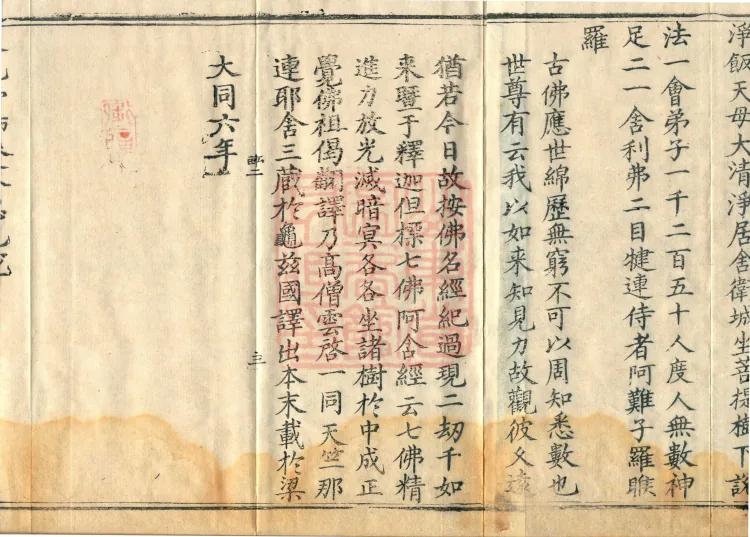 淨飯天母大清淨居舍衛城坐菩提樹下說
法一會弟子一千二百五十人度人無數神
足二一舍利弗二目犍連侍者阿難子羅睺
羅
古佛應世綿歷無窮不可以周知悉數也
世尊有云我以如来知見力故觀彼久遠
猶若今日故按佛名經紀過現二劫千如
来暨于釋迦但標七佛阿含經云七佛精
進力放光滅暗冥各各坐諸樹於中成正
覺佛祖偈翻譯乃高僧雲啓一同天竺那
連耶舍三藏於龜兹國譯出本末載於梁
三
大同六年